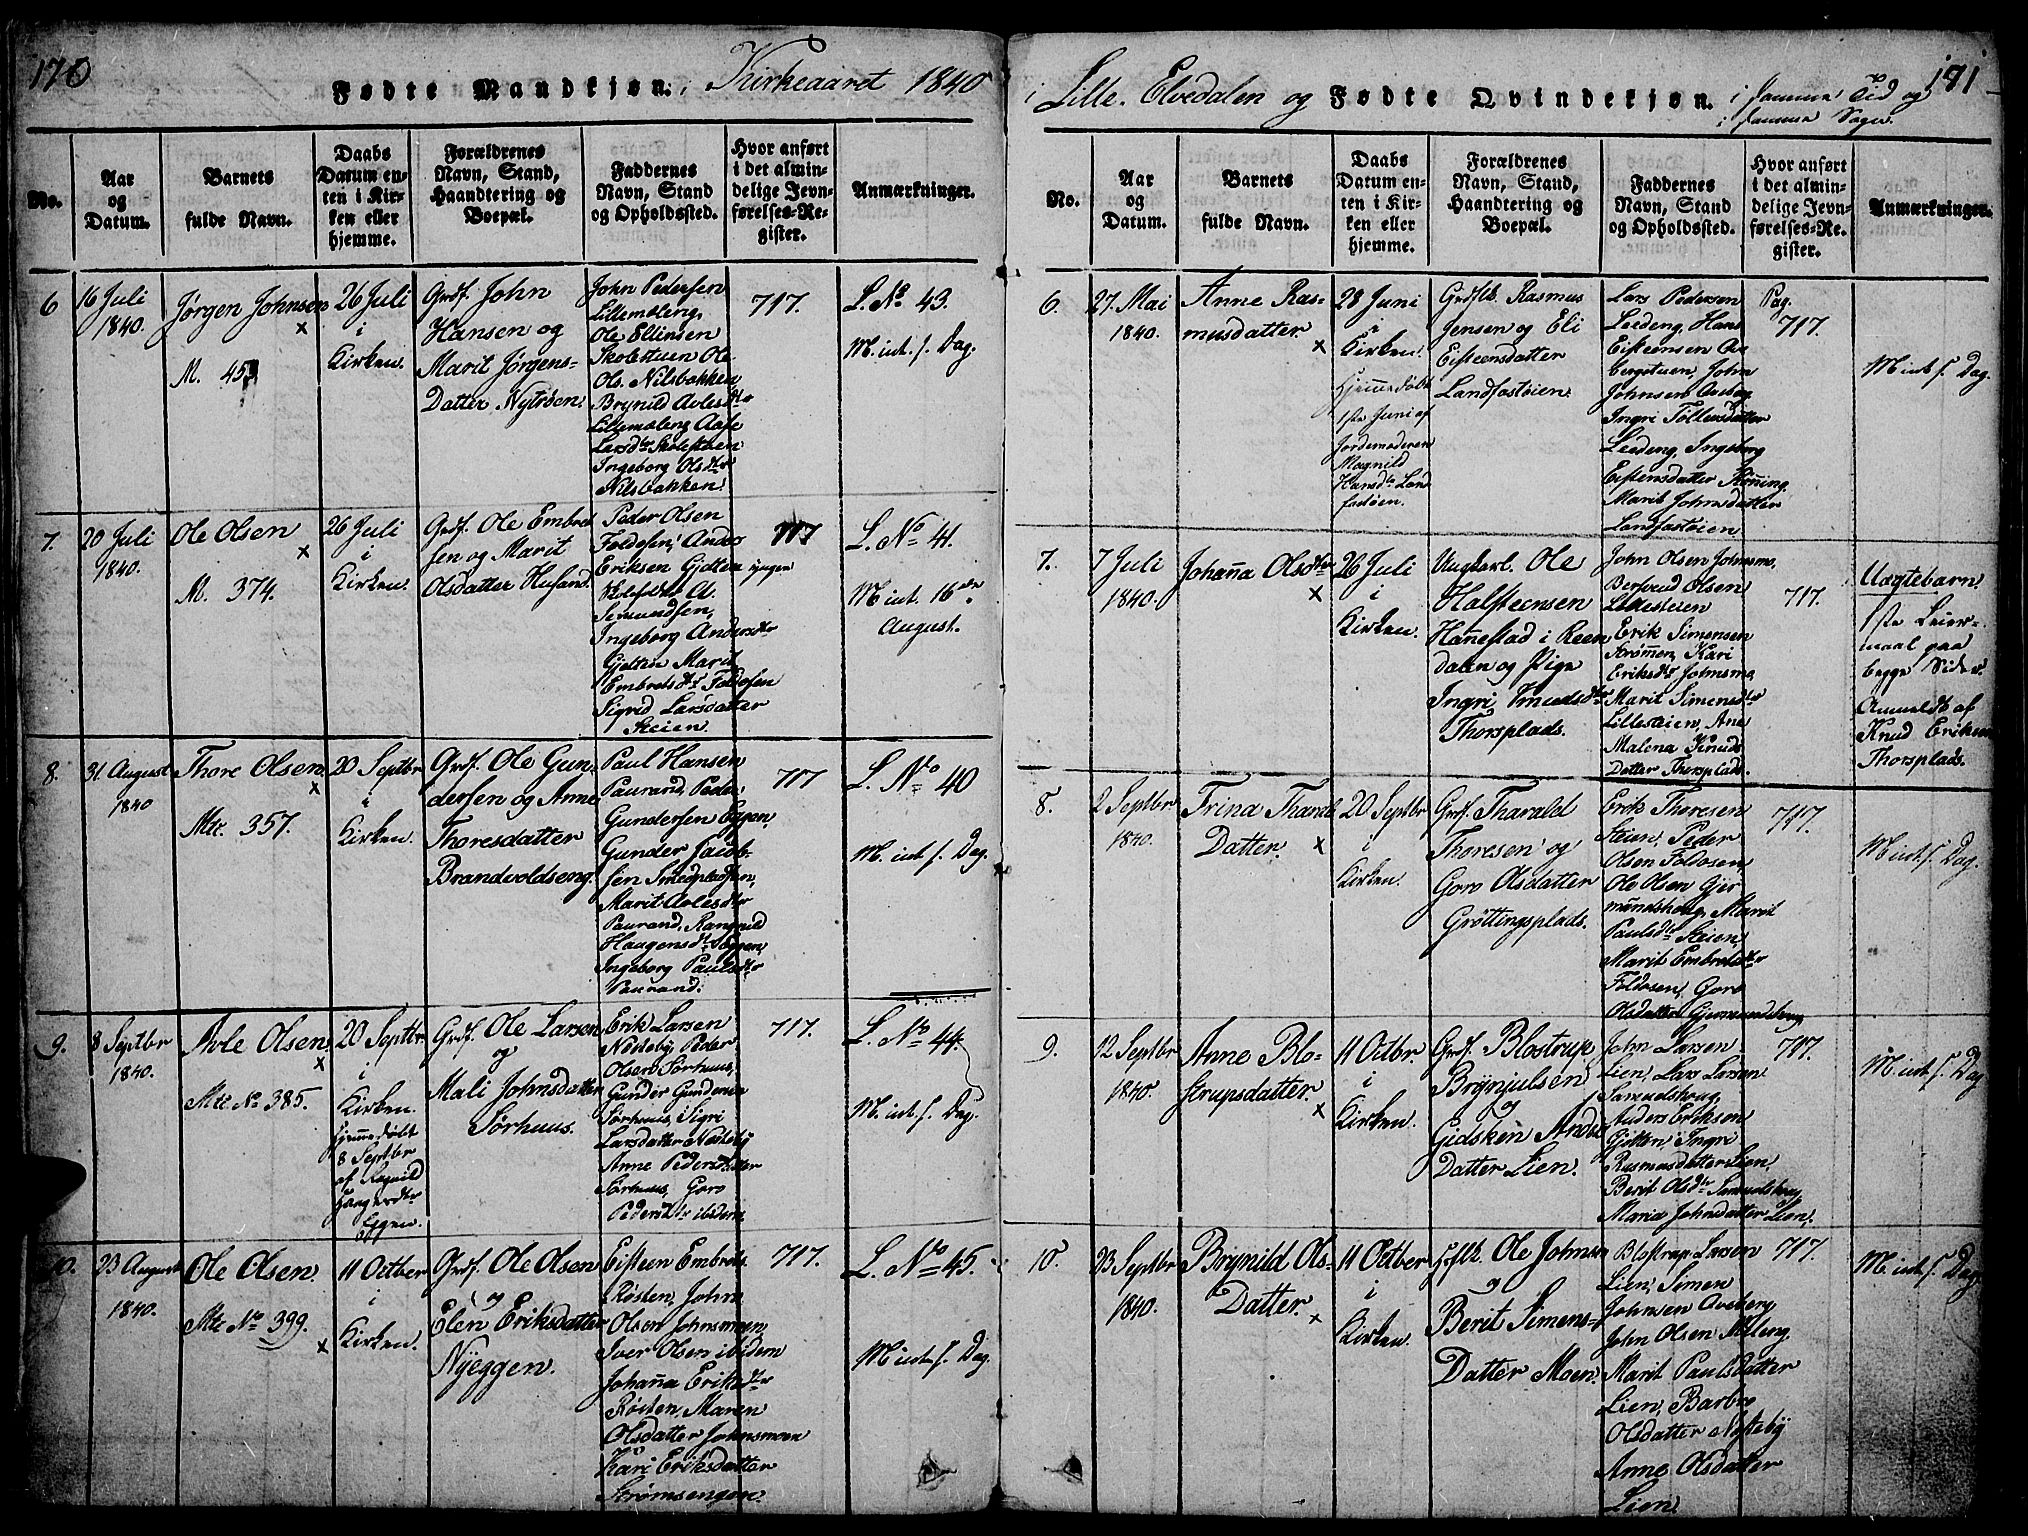 170
Fødte Mandkjøn, i Kirkeaaret 1840
No.
Aar
og
Datum.
Barnets
fulde Navn.
Daabs
Datum en-
ten i Kir-
ken eller
hjemme.
Forældrenes
Navn, Stand,
Haandtering og
Boepæl.
Faddernes
Navn, Stand
og Opholdssted.
Hvor anført
i det almin-
delige Jevn-
førelses-Re-
gister.
Anmærkninger.
6
16 Juli
1840.
Jørgen Johnsen
M. 45
26 Juli
i
Kirken.
Grdf. John
Hansen og
Marit Jørgens-
Datter Nytrøen.
John Pedersen
Lillemoleng,
Ole Ellinsen
Skolestuen Ole
Ols. Nilsbakken
Brynild Avlesdtr
Lillemoleng Aase
Larsdtr Skolestuen
Ingeborg Olsdtr
Nilsbakken.
717.
L. No 43.
M. int. s. Dag.
7.
20 Juli
1840.
Ole Olsen
M. 374.
26 Juli
i
Kirken.
Grdf. Ole Embret
sen og Marit
Olsdatter Husand.
Peder Olsen
Foldosen, Anders
Eriksen Gjøtten
Simundsen,
Ingeborg Andersdtr
Gjøtten Marit
Embretsdtr Foldosen
Sigrid Larsdatter
Steien.
717
L. No 41.
M. int. 16de
August.
8.
31 August
1840
Thore Olsen
Mtr. 357.
20 Septbr
i
Kirken.
Grdf. Ole Gun-
dersen og Anne
Thoresdatter
Brandvoldseng.
Paul Hansen
Paurand, Peder
Gundersen Eggen,
Gunder Jacob-
sen Smedpladsen,
Marit Avlesdtr
Paurand, Rangnild
Haagensdtr Eggen,
Ingeborg Paulsdtr
Paurand.
717
L. No 40
M. int. s. Dag.
9.
8 Septbr
1840.
Avle Olsen
Mtr No 385.
20 Septbr
i
Kirken.
Hjemmedøbt
8 Septbr
af Ragnild
Haagensdtr
Eggen.
Grdf. Ole Larsen
og
Mali Johnsdatter
Sørhuus.
Erik Larsen
Nordeby, Peder
Olsen Sørhuus,
Gunder Gundersen
Sørhuus, Sigri
Larsdatter Nordeby
Anne Pedersdatter
Sørhuus, Goro
Pedersdtr ibidem
717.
L. No 44.
M. int. s. Dag.
10.
23 August
1840.
Ole Olsen.
Mtr No 399.
11 Octber
i
Kirken.
Grdf. Ole Olsen
og
Elen Eriksdatter
Nyeggen.
Eisteen Embrets.
Røsten, John
Olsen Johnsmoen,
Iver Olsen ibidem
Johanna Eriksdtr
Røsten, Maren
Olsdatter Johnsmoen
Kari Eriksdatter
Strømsengen.
717.
L. No 45.
M. int. s. Dag.
171
i Lille Elvedalen og Fødte Qvindekjøn. i samme Tid og
i samme Sogn.
No.
Aar
og
Datum.
Barnets
fulde Navn.
Daabs
Datum en-
ten i Kir-
ken eller
hjemme.
Forældrenes
Navn, Stand,
Haandtering og
Boepæl.
Faddernes
Navn, Stand
og Opholdssted.
Hvor anført
i det almin-
delige Jevn-
førelses-Re-
gister.
Anmærkninger.
6.
27. Mai
1840.
Anne Ras-
musdatter.
28 Juni
i
Kirken.
Hjemmedøbt
1ste Juni af
Jordemoderen
Magnild
Hansdtr Lan
fastøien.
Grdfbr. Rasmus
Jensen og Eli
Eisteensdatter
Landfastøien.
Lars Pedersen
Leedeng, Hans
Eisteensen
bergstuen, John
Johnsen Avsberg
Ingri Tollevsdatter
Leedeng, Ingeborg
Eistensdatter
Marit Johnsdatter
Landfastøien
Pag.
717.
M int s. Dag.
7.
7 Juli
1840.
Johanna Olsdtr
26 Juli
i
Kirken.
Ungkrl. Ole
Halsteensen
Hanestad i Reen
dalen og Pige
Ingri Knudsdtr
Thorsplads.
John Olsen Johnsmo,
Bersvend Olsen
Lillesteien
Erik Simensen
Strømmen, Kari
Eriksdtr Johnsmo,
Marit Simensdtr
Lillesteien, Ane
Malena Knuds
Datter Thorsplads.
717.
Uægtebarn.
1ste Leier-
maal paa
begge Sider.
Anmeldt af
Knud Eriksen
Thorsplads.
8.
2 Septbr
1840.
Trina Tharalds
Datter.
20 Septbr
i
Kirken.
Grdf. Tharald
Thoresen og
Goro Olsdatter
Grøttingsplads.
Erik Thoresen
Steien, Peder
Olsen Foldosen,
Ole Olsen Gjer
mundshoug, Marit
Paulsdtr Steien,
Marit Embretsdtr
Foldosen, Goro
Olsdatter Gjermundshoug
717.
M int. s. Dag.
9.
12 Septbr
1840.
Anne Blo-
strupsdatter.
11 Octbr
i
Kirken.
Grdf. Blostrup
Brynjulsen
og
Gidsken Anders
Datter Lien.
John Larsen
Lien, Lars Larsen
Samuelshoug,
Anders Eriksen
Gjøtten, Ingri
Rasmusdatter Lien,
Berit Olsdtr Samuelshoug
Maria Johnsdatter Lien.
717.
M. int. s. Dag
10.
23 Septbr
1840.
Brynild Ols-
Datter.
11 Octber
i
Kirken.
Ole Johnsen
og
Berit Simens-
Datter Moen.
Blostrup Larsen
Lien, Simen
Johnsen Avsberg
John Olsen Moleng
Marit Paulsdatter
Lien, Barbro
Olsdatter Nysteby
Anne Olsdatter
Lien.
717.
M. int. s. Dag.